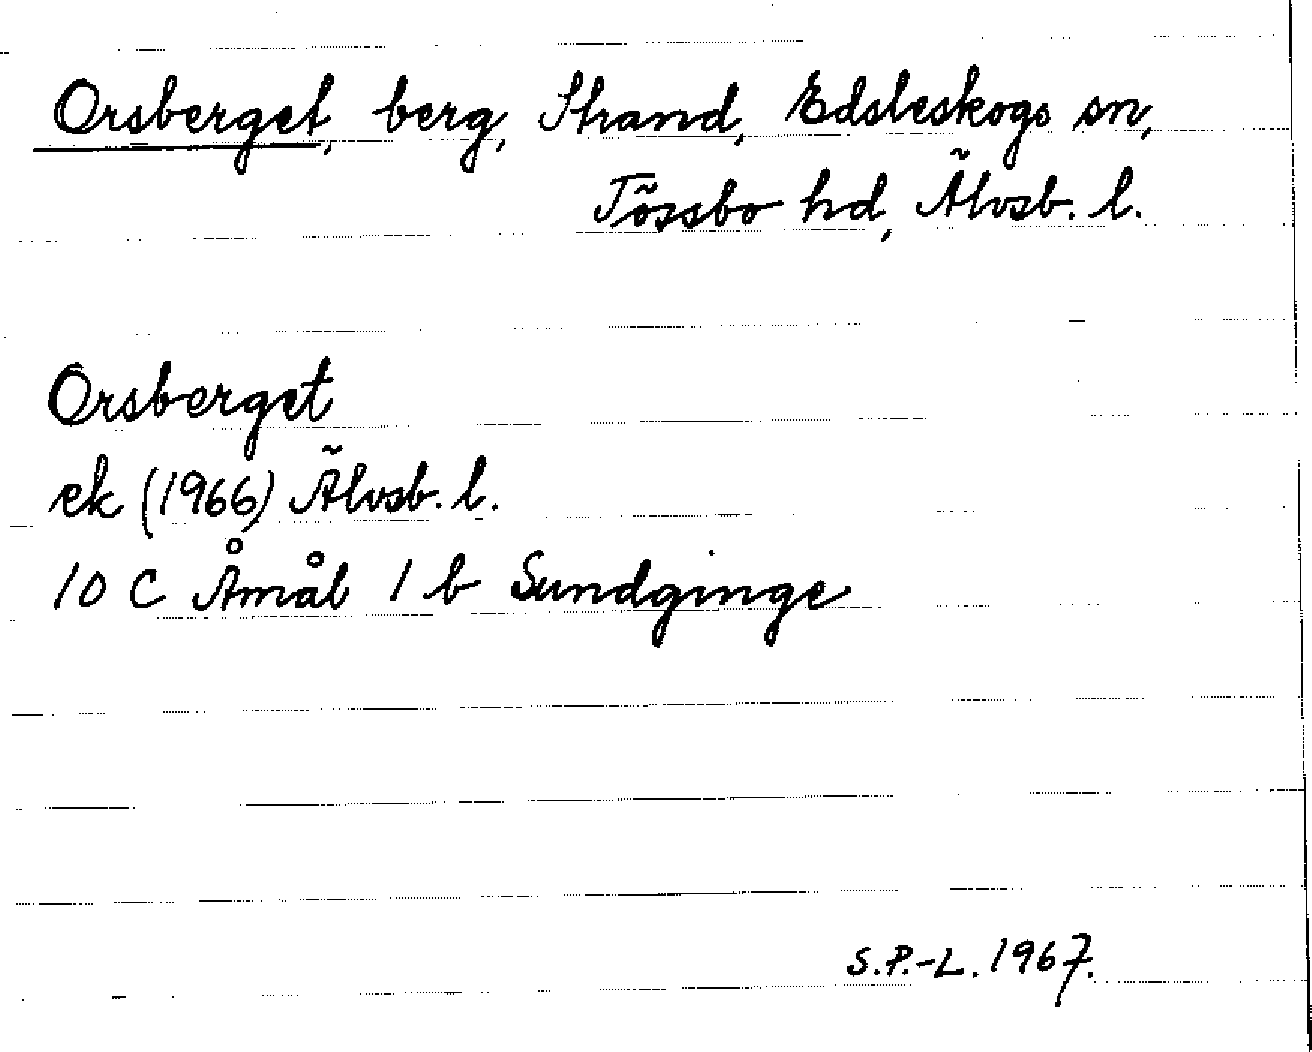 Orsberget, berg, Strand, Edsleskogs sn,
Tössbo hd, Älvsb. l.
Orsberget
ek (1966) Älvsb. l.
10 C Åmål 1 b Sundginge
S.P.-L. 1967.